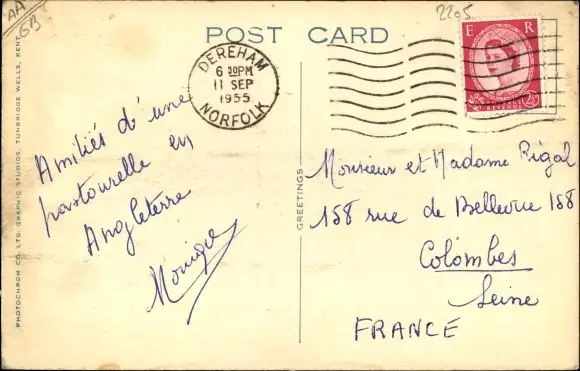 AA
GB
2205
POST CARD
DEREHAM
6 30PM
11 SEP
1955
NORFOLK
E R
POSTAGE
REVENUE
2½
Amitiés d'une
pastourelle en
Angleterre
Monique
GREETINGS
Monsieur et Madame Rigal
158 rue de Bellevue 158
Colombes
Seine
FRANCE
PHOTOCHROM CO. LTD. GRAPHIC STUDIOS, TUNBRIDGE WELLS, KENT.